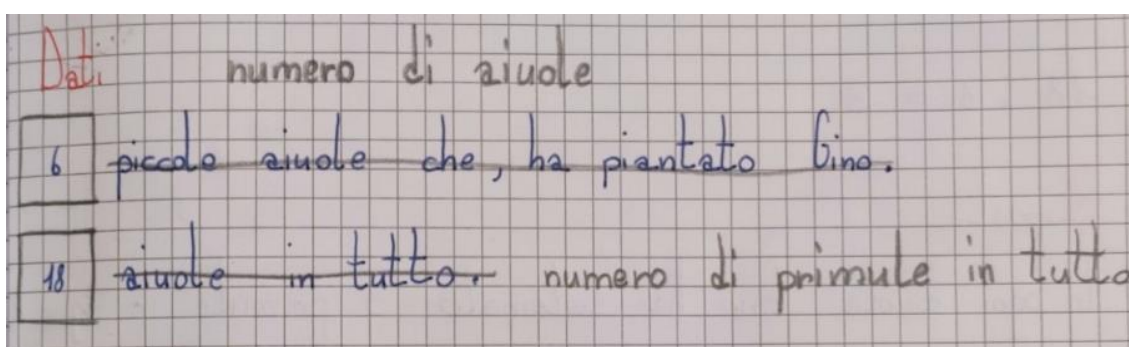 Dati: numero di aiuole
6 piccole aiuole che, ha piantato Gino.
18 aiuole in tutto. numero di primule in tutto